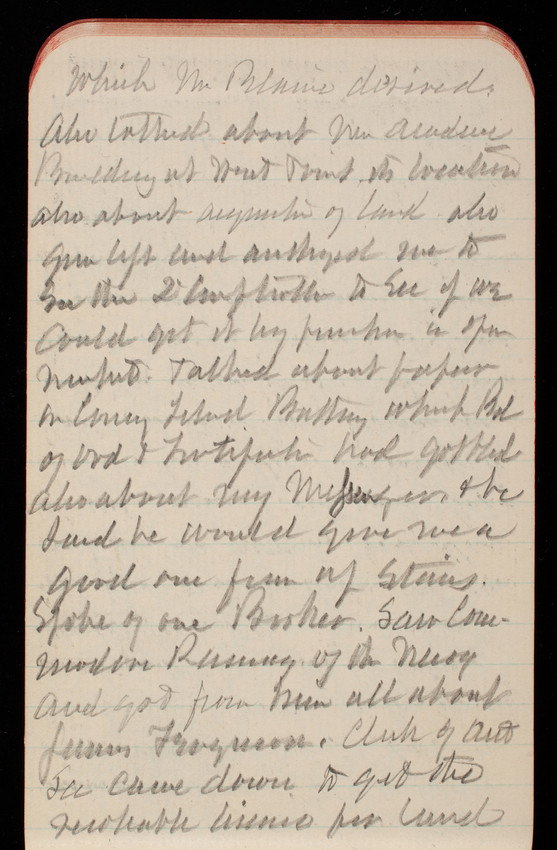 Which Mr Blaine desired.
Also talked about new academic
Building at West Point its location
also about acquisition of land also
Gun lift and authorized me to
See the 2d Comptroller to See if we
could get it by purchase in open
market. Talked about papers
on Coney Island Battery which Bd
of Ord & Fortification had gobbled
also about my Messenger & he
said he would give me a
good one from up Stairs.
Spoke of one Booker. Saw Com-
modore Ramsay of the Navy
and got from him all about
Ferguson. Clerk of Asst
Sec came down to get the
revokable license for land